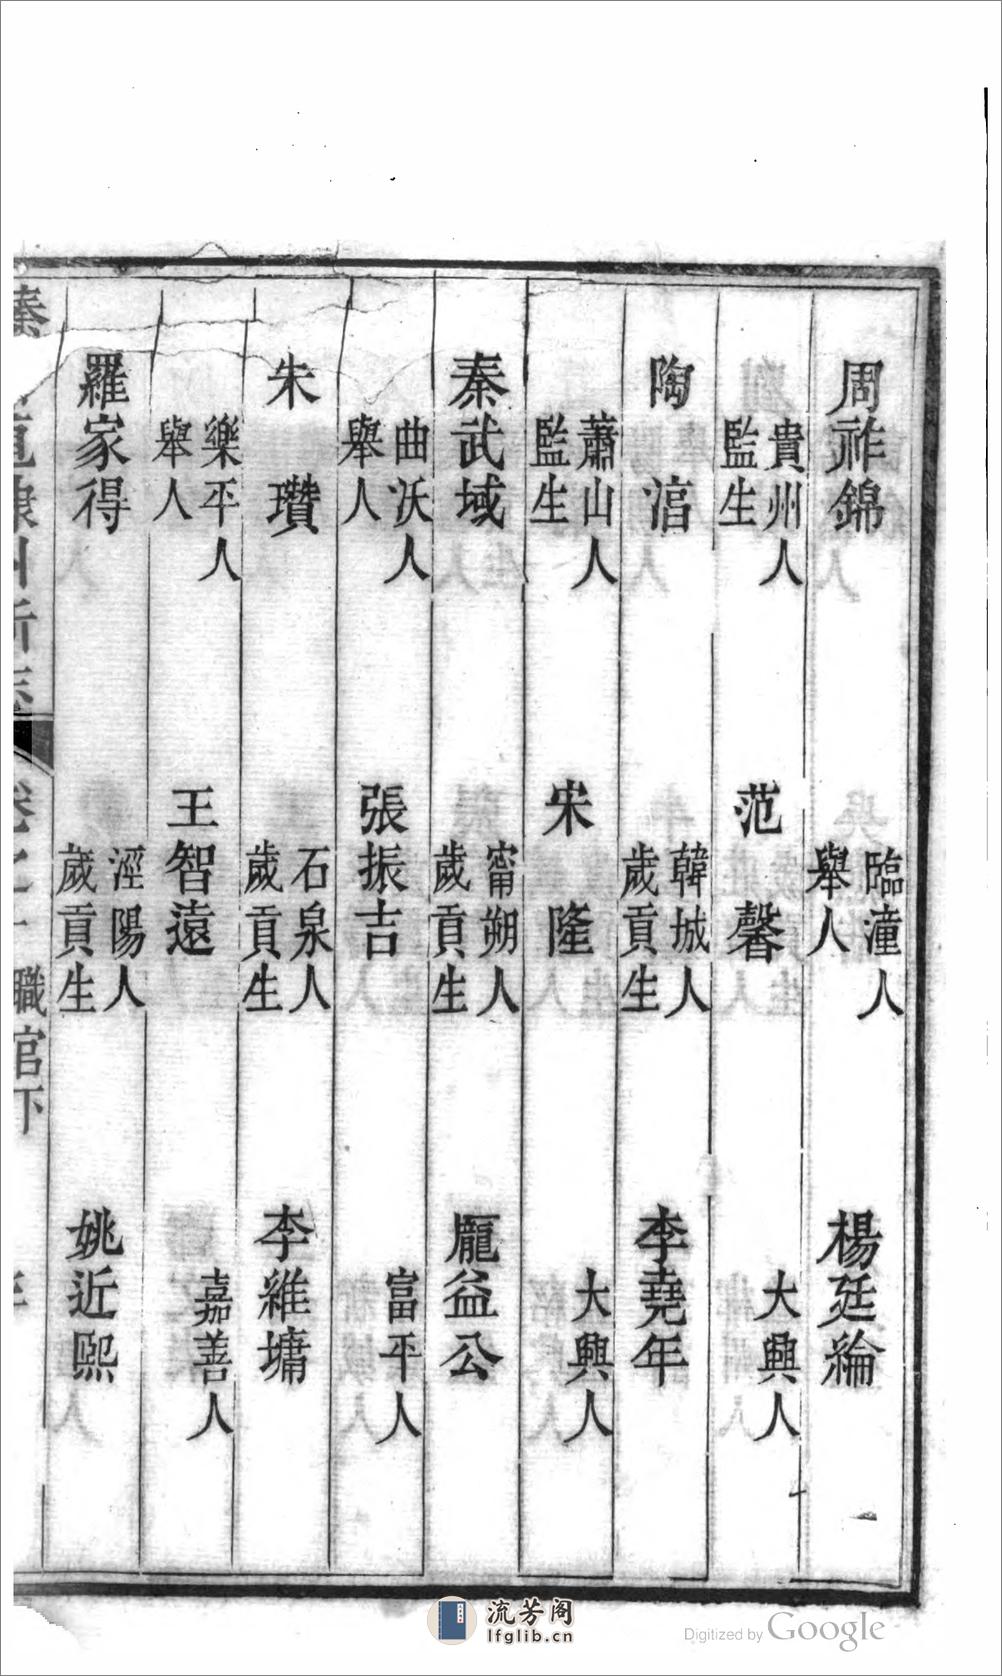 周祚錦
臨潼人
舉人
楊廷綸
貴州人
監生
范馨
大興人
陶涪
韓城人
歲貢生
李堯年
蕭山人
監生
宋隆
大興人
秦武域
甯朔人
歲貢生
龐益公
曲沃人
舉人
張振吉
富平人
朱瓚
石泉人
歲貢生
李維墉
樂平人
舉人
王智遠
嘉善人
羅家得
涇陽人
歲貢生
姚近熙
職官下
流芳阁
lfglib.cn
Digitized by Google